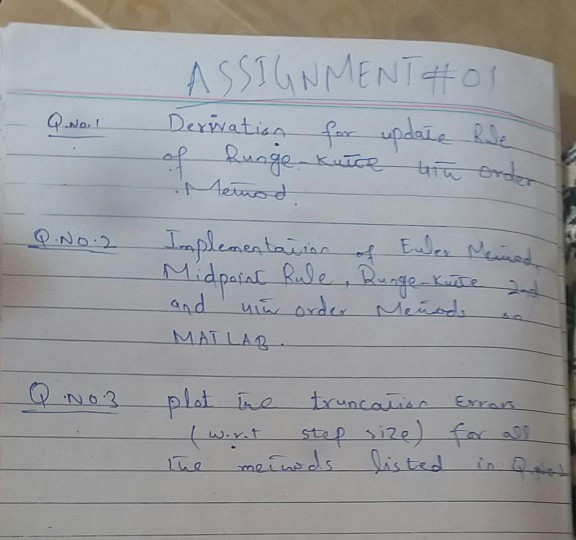 ASSIGNMENT #01
Q.No.1 Derivation for update Rule
of Runge-Kutte 4th order
Method.
Q.No.2 Implementation of Euler Method,
Midpoint Rule, Runge-Kutte 2nd
and 4th order Methods in
MATLAB.
Q.No.3 plot the truncation Errors
(w.r.t step size) for all
the methods listed in Q.No.2